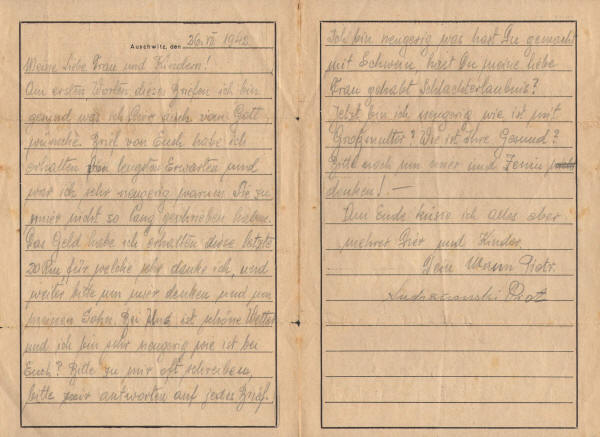 Auschwitz, den 26. VII 1942
Meine Liebe Frau und Kindern!
Am ersten Worten dieses Briefen ich bin
gesund was ich Dier auch vom Gott
wünsche. Brief von Euch habe ich
erhalten den lengsten Erwarten und
war ich sehr neugerig warum Sie zu
mier nicht so lang geschrieben haben.
Das Geld habe ich erhalten diese letzte
20 Rm für welche sehr danke ich, und
weiter bitte um mier denken und um
meinen Sohn. Bei Uns ist schöne Wetter
und ich bin sehr neugerig wie ist bei
Euch? Bitte zu mir oft schreiben,
bitte mir antworten auf jedes Brief.
Ich bin neugerig was hast Du gemacht
mit Schwein hast Du meine liebe
Frau gehabt Schlachterlaubnis?
Jetzt bin ich neugerig wie ist mit
Großmutter? Wie ist ihre Gesund?
Bitte noch um einer und
denken! —
Am Ende küsse ich alles aber
mehrer Dier und Kinder.
Dein Mann Piotr.
Piotr